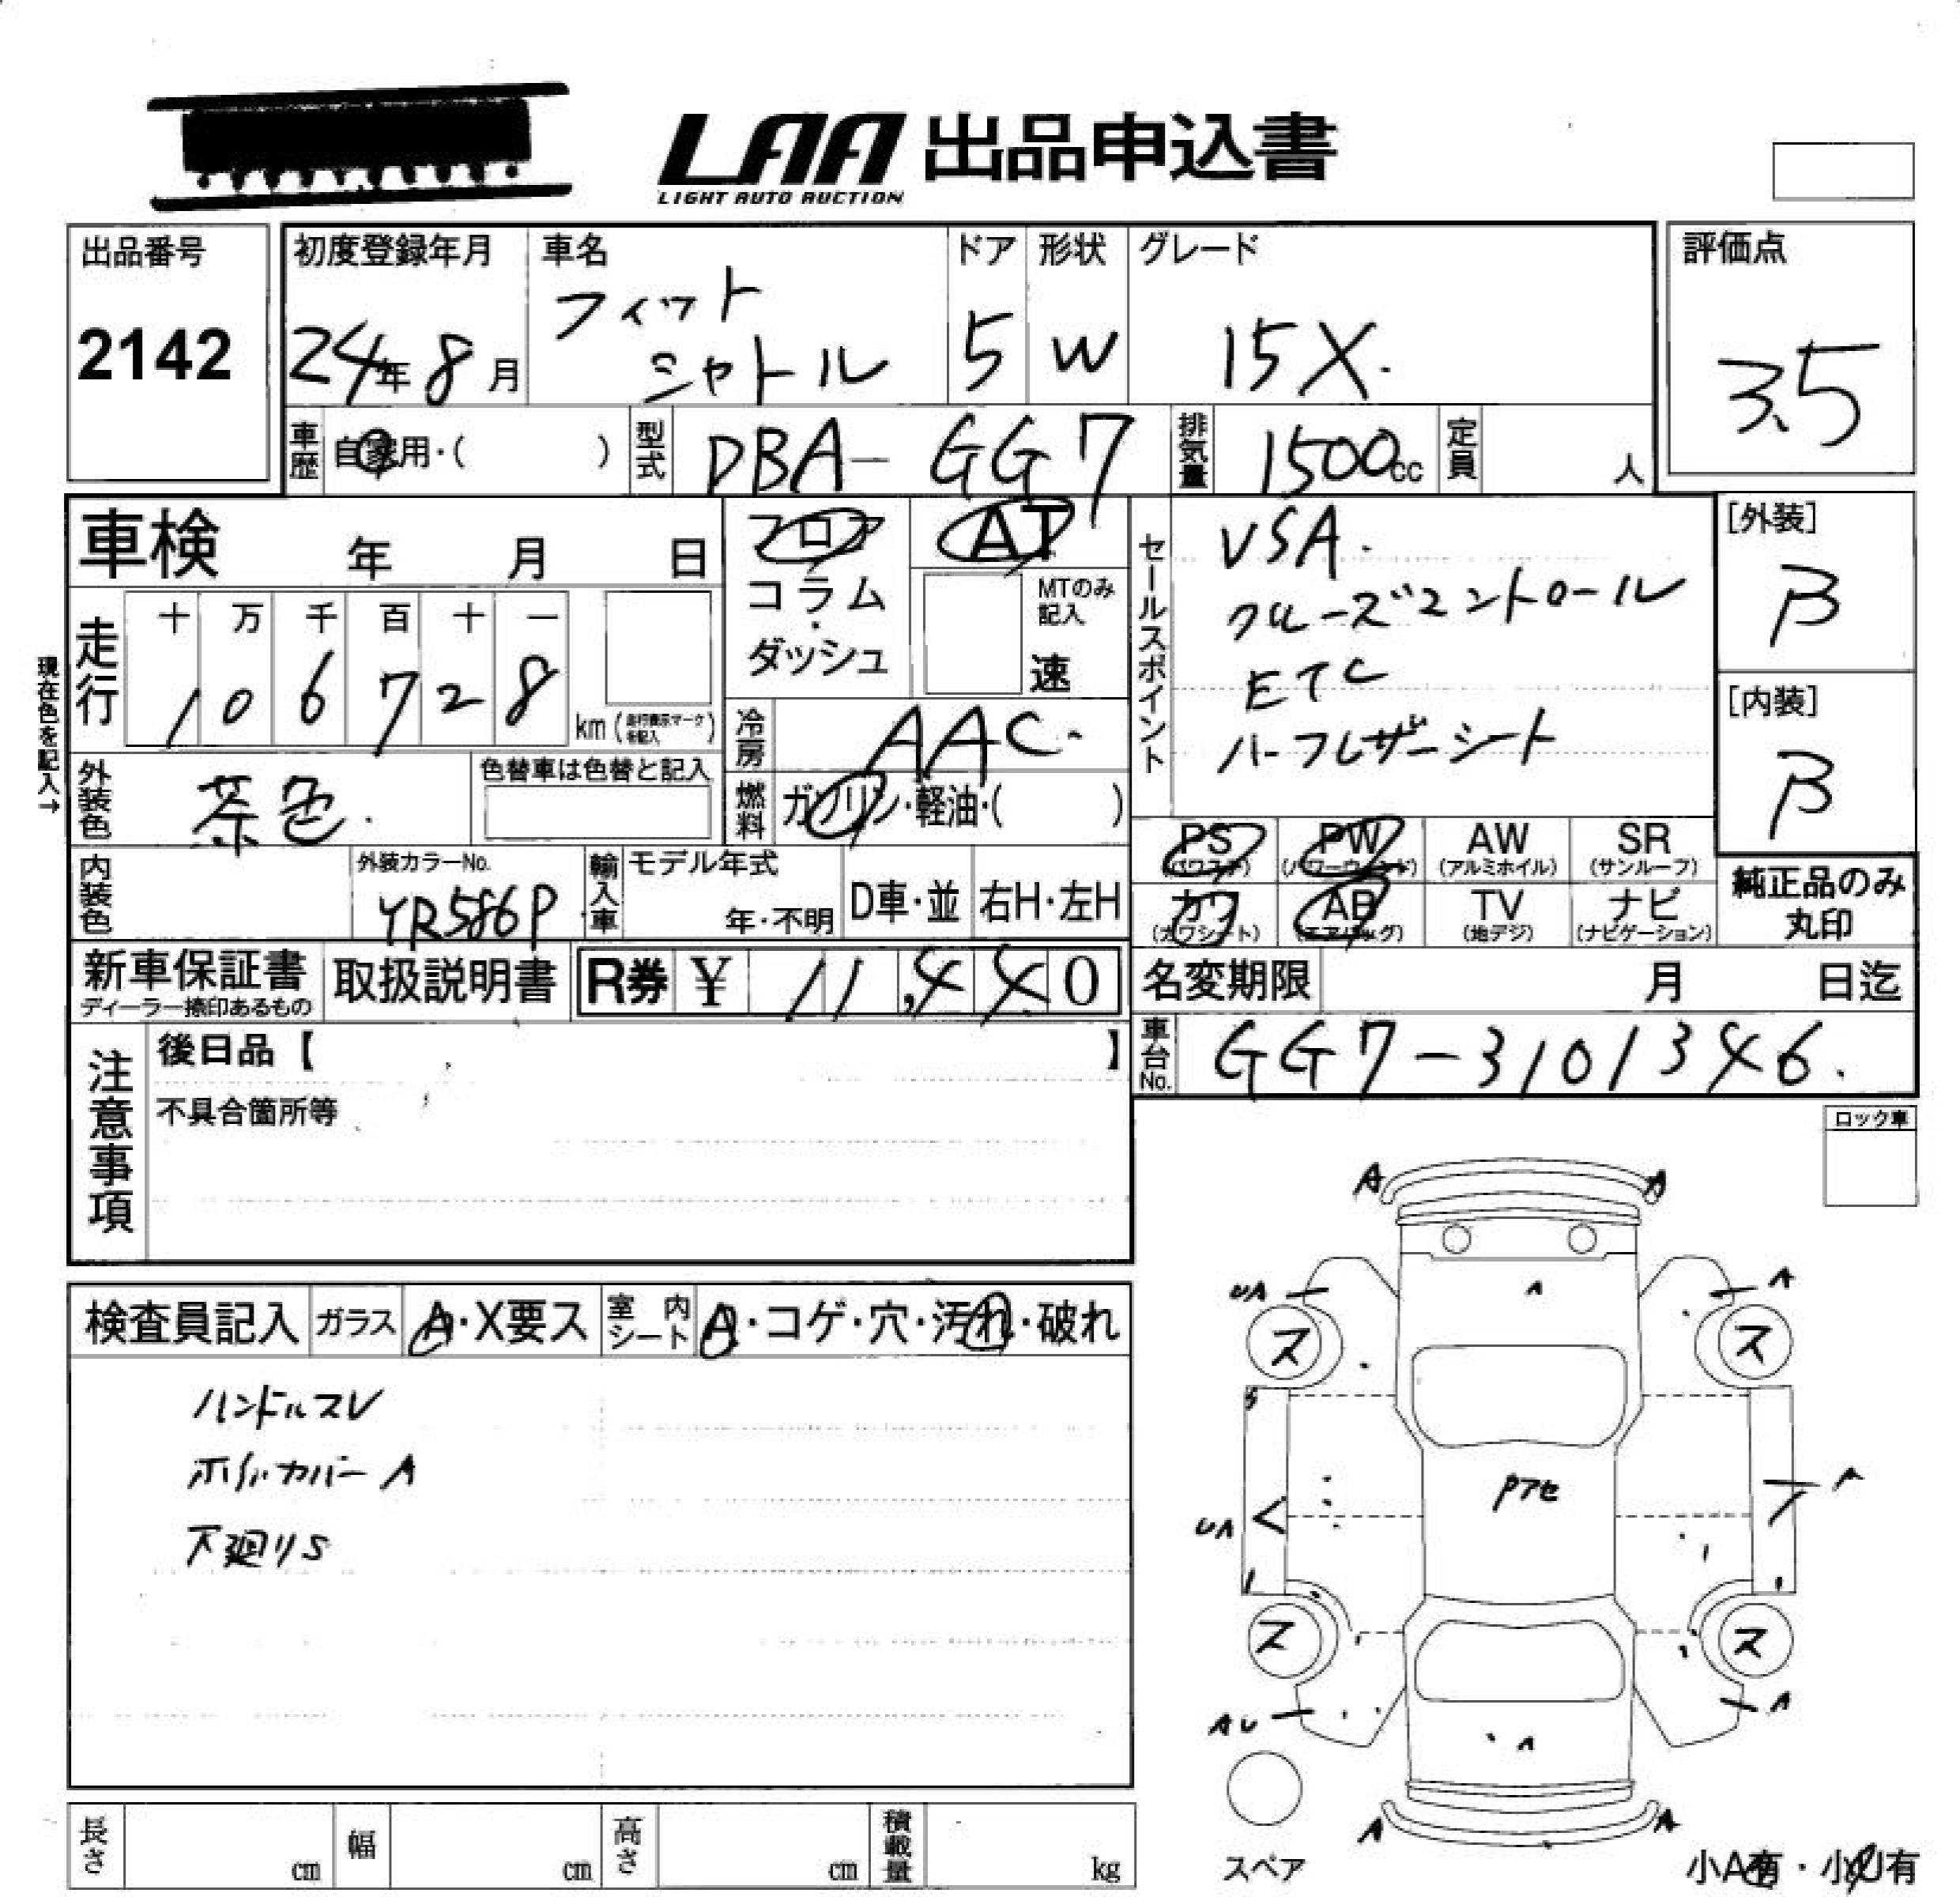 LAA 出品申込書
LIGHT AUTO AUCTION
出品番号
2142
初度登録年月
24年 8月
車名
フィット
シャトル
ドア
5
形状
W
グレード
15X.
評価点
3.5
車歴
自家用・( )
型式
DBA-GG7
排気量
1500cc
定員
人
車検 年 月 日
フロア
コラム・
ダッシュ
AT
MTのみ
記入
速
セールスポイント
VSA.
クルーズコントロール
ETC
ハーフレザーシート
[外装]
B
[内装]
B
現在色を記入→
走行
十 万 千 百 十 一
1 0 6 7 2 8
km (走行表示マークを記入)
冷房
AAC.
燃料
ガソリン・軽油・( )
外装色
茶色.
色替車は色替と記入
内装色
外装カラーNo.
YR586P
輸入車
モデル年式
年・不明
D車・並
右H・左H
PS
(パワステ)
PW
(パワーウィンド)
AW
(アルミホイル)
SR
(サンルーフ)
カワ
(カワシート)
AB
(エアバッグ)
TV
(地デジ)
ナビ
(ナビゲーション)
純正品のみ
丸印
新車保証書
ディーラー捺印あるもの
取扱説明書
R券 ¥ 11,440
名変期限 月 日迄
車台No.
GG7-3101346.
注意事項
後日品【 】
不具合箇所等
ロック車
検査員記入
ガラス
A・X要ス
室内シート
A・コゲ・穴・汚れ・破れ
ハンドルスレ
ホイルカバーA
下廻りS
A A
UA A
A
ス ス
S
Pアセ
A
UA
ス ス
AU A
A
A A
スペア
小A有・小U有
長さ cm
幅 cm
高さ cm
積載量 kg